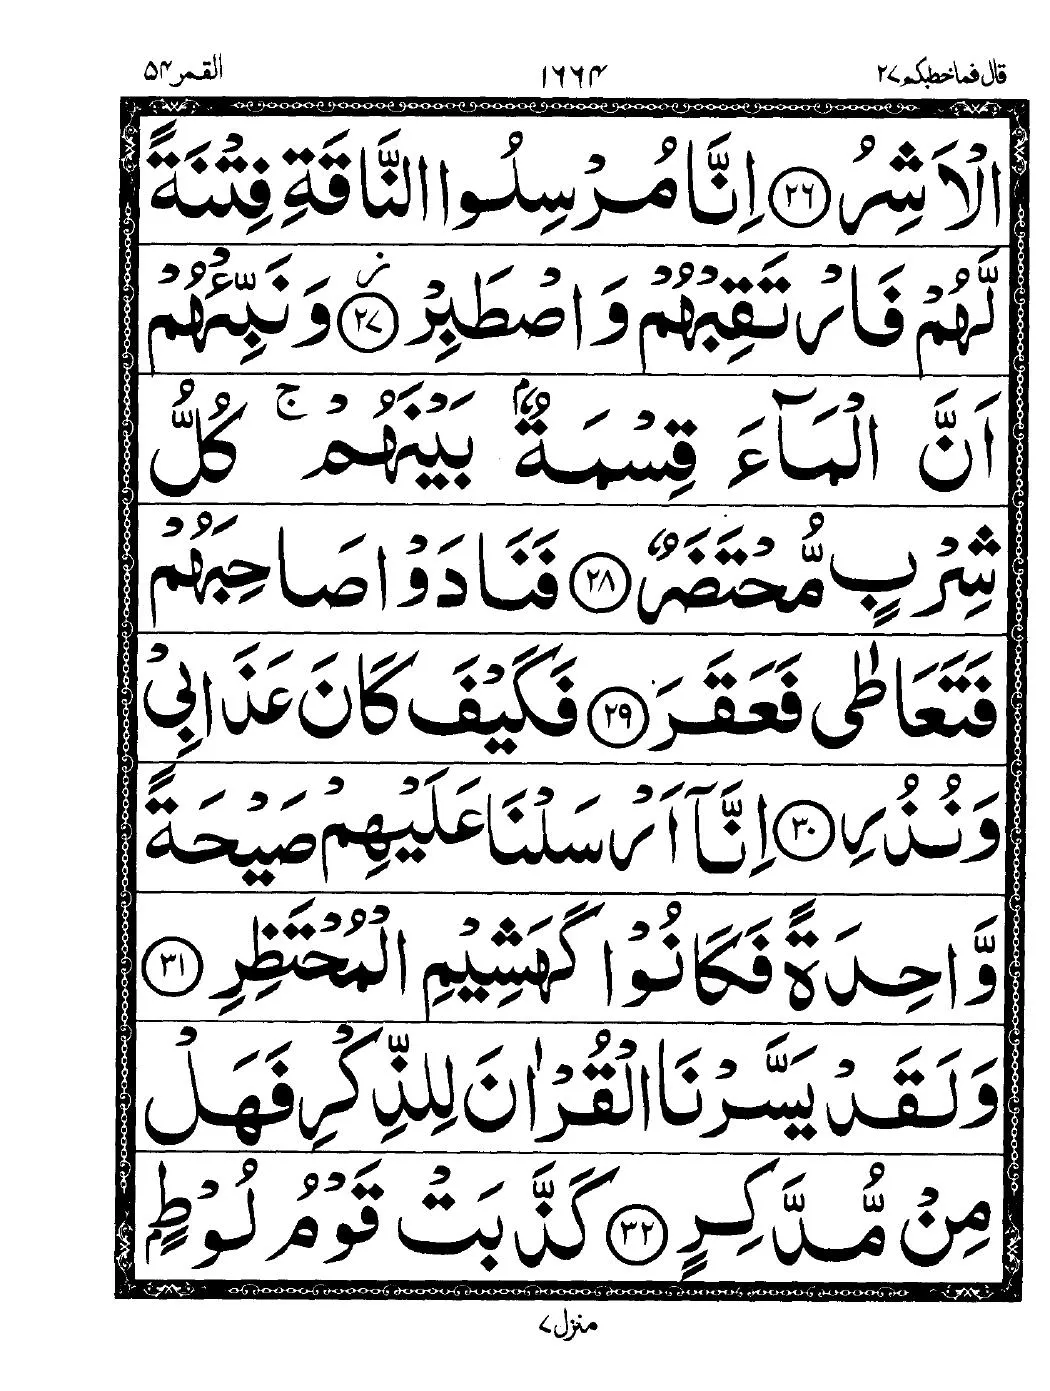 قال فما خطبكم ٢٧ ١٦٦٤ القمر ٥٤
الْاَشِرُ ٢٦ اِنَّا مُرْسِلُوا النَّاقَةِ فِتْنَةً
لَّهُمْ فَارْتَقِبْهُمْ وَاصْطَبِرْ ٢٧ ز وَنَبِّئْهُمْ
اَنَّ الْمَآءَ قِسْمَةٌۢ بَيْنَهُمْ ج كُلُّ
شِرْبٍ مُّحْتَضَرٌ ٢٨ فَنَادَوْا صَاحِبَهُمْ
فَتَعَاطٰى فَعَقَرَ ٢٩ فَكَيْفَ كَانَ عَذَابِيْ
وَنُذُرِ ٣٠ اِنَّآ اَرْسَلْنَا عَلَيْهِمْ صَيْحَةً
وَّاحِدَةً فَكَانُوْا كَهَشِيْمِ الْمُحْتَظِرِ ٣١
وَلَقَدْ يَسَّرْنَا الْقُرْاٰنَ لِلذِّكْرِ فَهَلْ
مِنْ مُّدَّكِرٍ ٣٢ كَذَّبَتْ قَوْمُ لُوْطٍۭ
منزل ٧